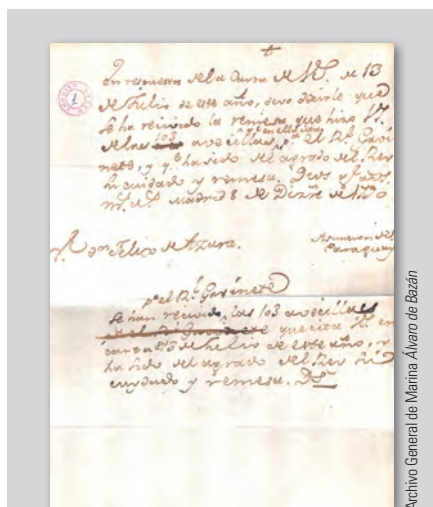 En respuesta de la Carta de Vd. de 13
de Julio de este año, devo decirle que
se ha recivido la remesa que hizo Vd.
de las 103 avecillas, pª el Rl. Gavi
nete, y qe ha sido del agrado del Rey
su cuidado y remesa. Dios gue
ms. as. Madrid 8 de Dizre de
Dn. Felix de Azara.
Asuncion del
Paraguay
pª el Rl. Gavinete
Se han recivido, las 103 avecillas
que cita Vd. en
carta de 13 de Julio de este año, y
ha sido del agrado del Rey su
cuydado y remesa. Ds.
Archivo General de Marina Álvaro de Bazán